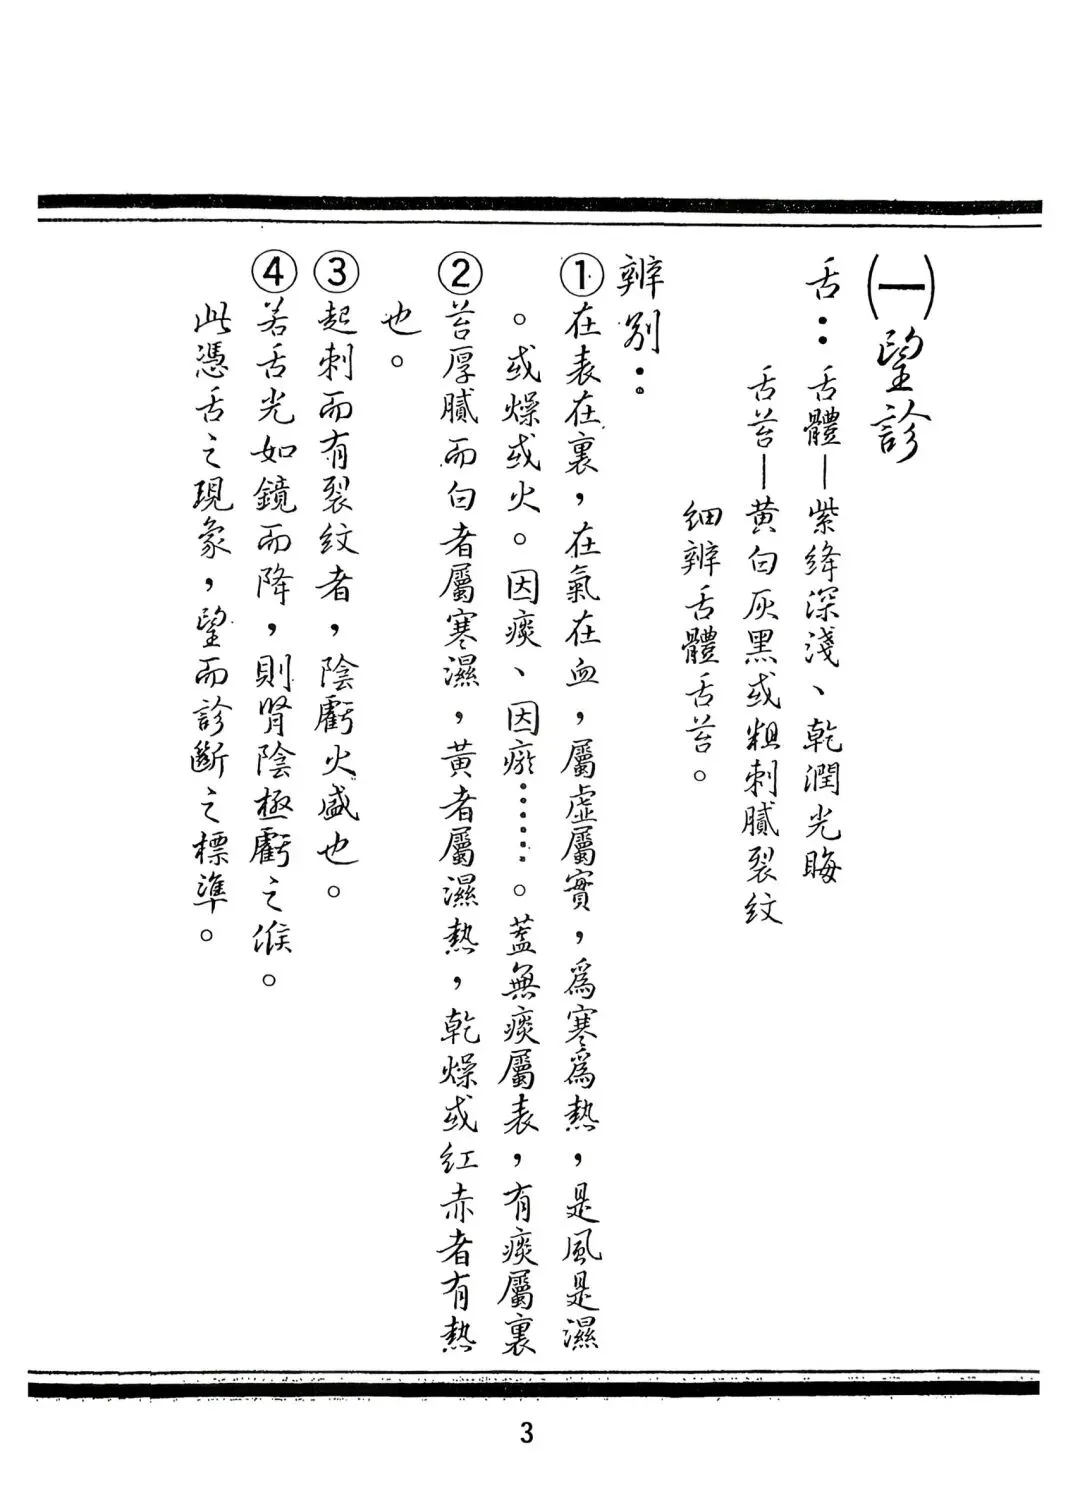 (一)望診
舌：舌體—紫絳深淺、乾潤光晦
舌苔—黃白灰黑或粗刺膩裂紋
細辨舌體舌苔。
辨別：
①在表在裏，在氣在血，屬虛屬實，為寒為熱，是風是濕
。或燥或火。因痰、因瘀……。蓋無痰屬表，有痰屬裏
②苔厚膩而白者屬寒濕，黃者屬濕熱，乾燥或紅赤者有熱
也。
③起刺而有裂紋者，陰虧火盛也。
④若舌光如鏡而降，則腎陰極虧之候。
此憑舌之現象，望而診斷之標準。
3